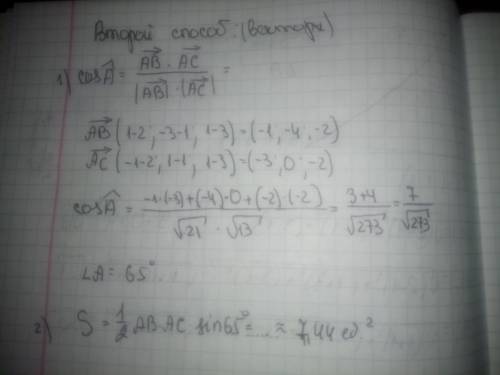 Второй способ: (векторы)
1) cosÂ = (AB⃗ · AC⃗) / (|AB⃗| · |AC⃗|) =
AB⃗ (1-2; -3-1; 1-3) = (-1; -4; -2)
AC⃗ (-1-2; 1-1; 1-3) = (-3; 0; -2)
cosÂ = (-1·(-3)+(-4)·0+(-2)·(-2)) / (√21 · √13) = (3+4) / √273 = 7 / √273
∠A = 65°
2) S = 1/2 AB AC sin65° = .... ≈ 7,44 ед²